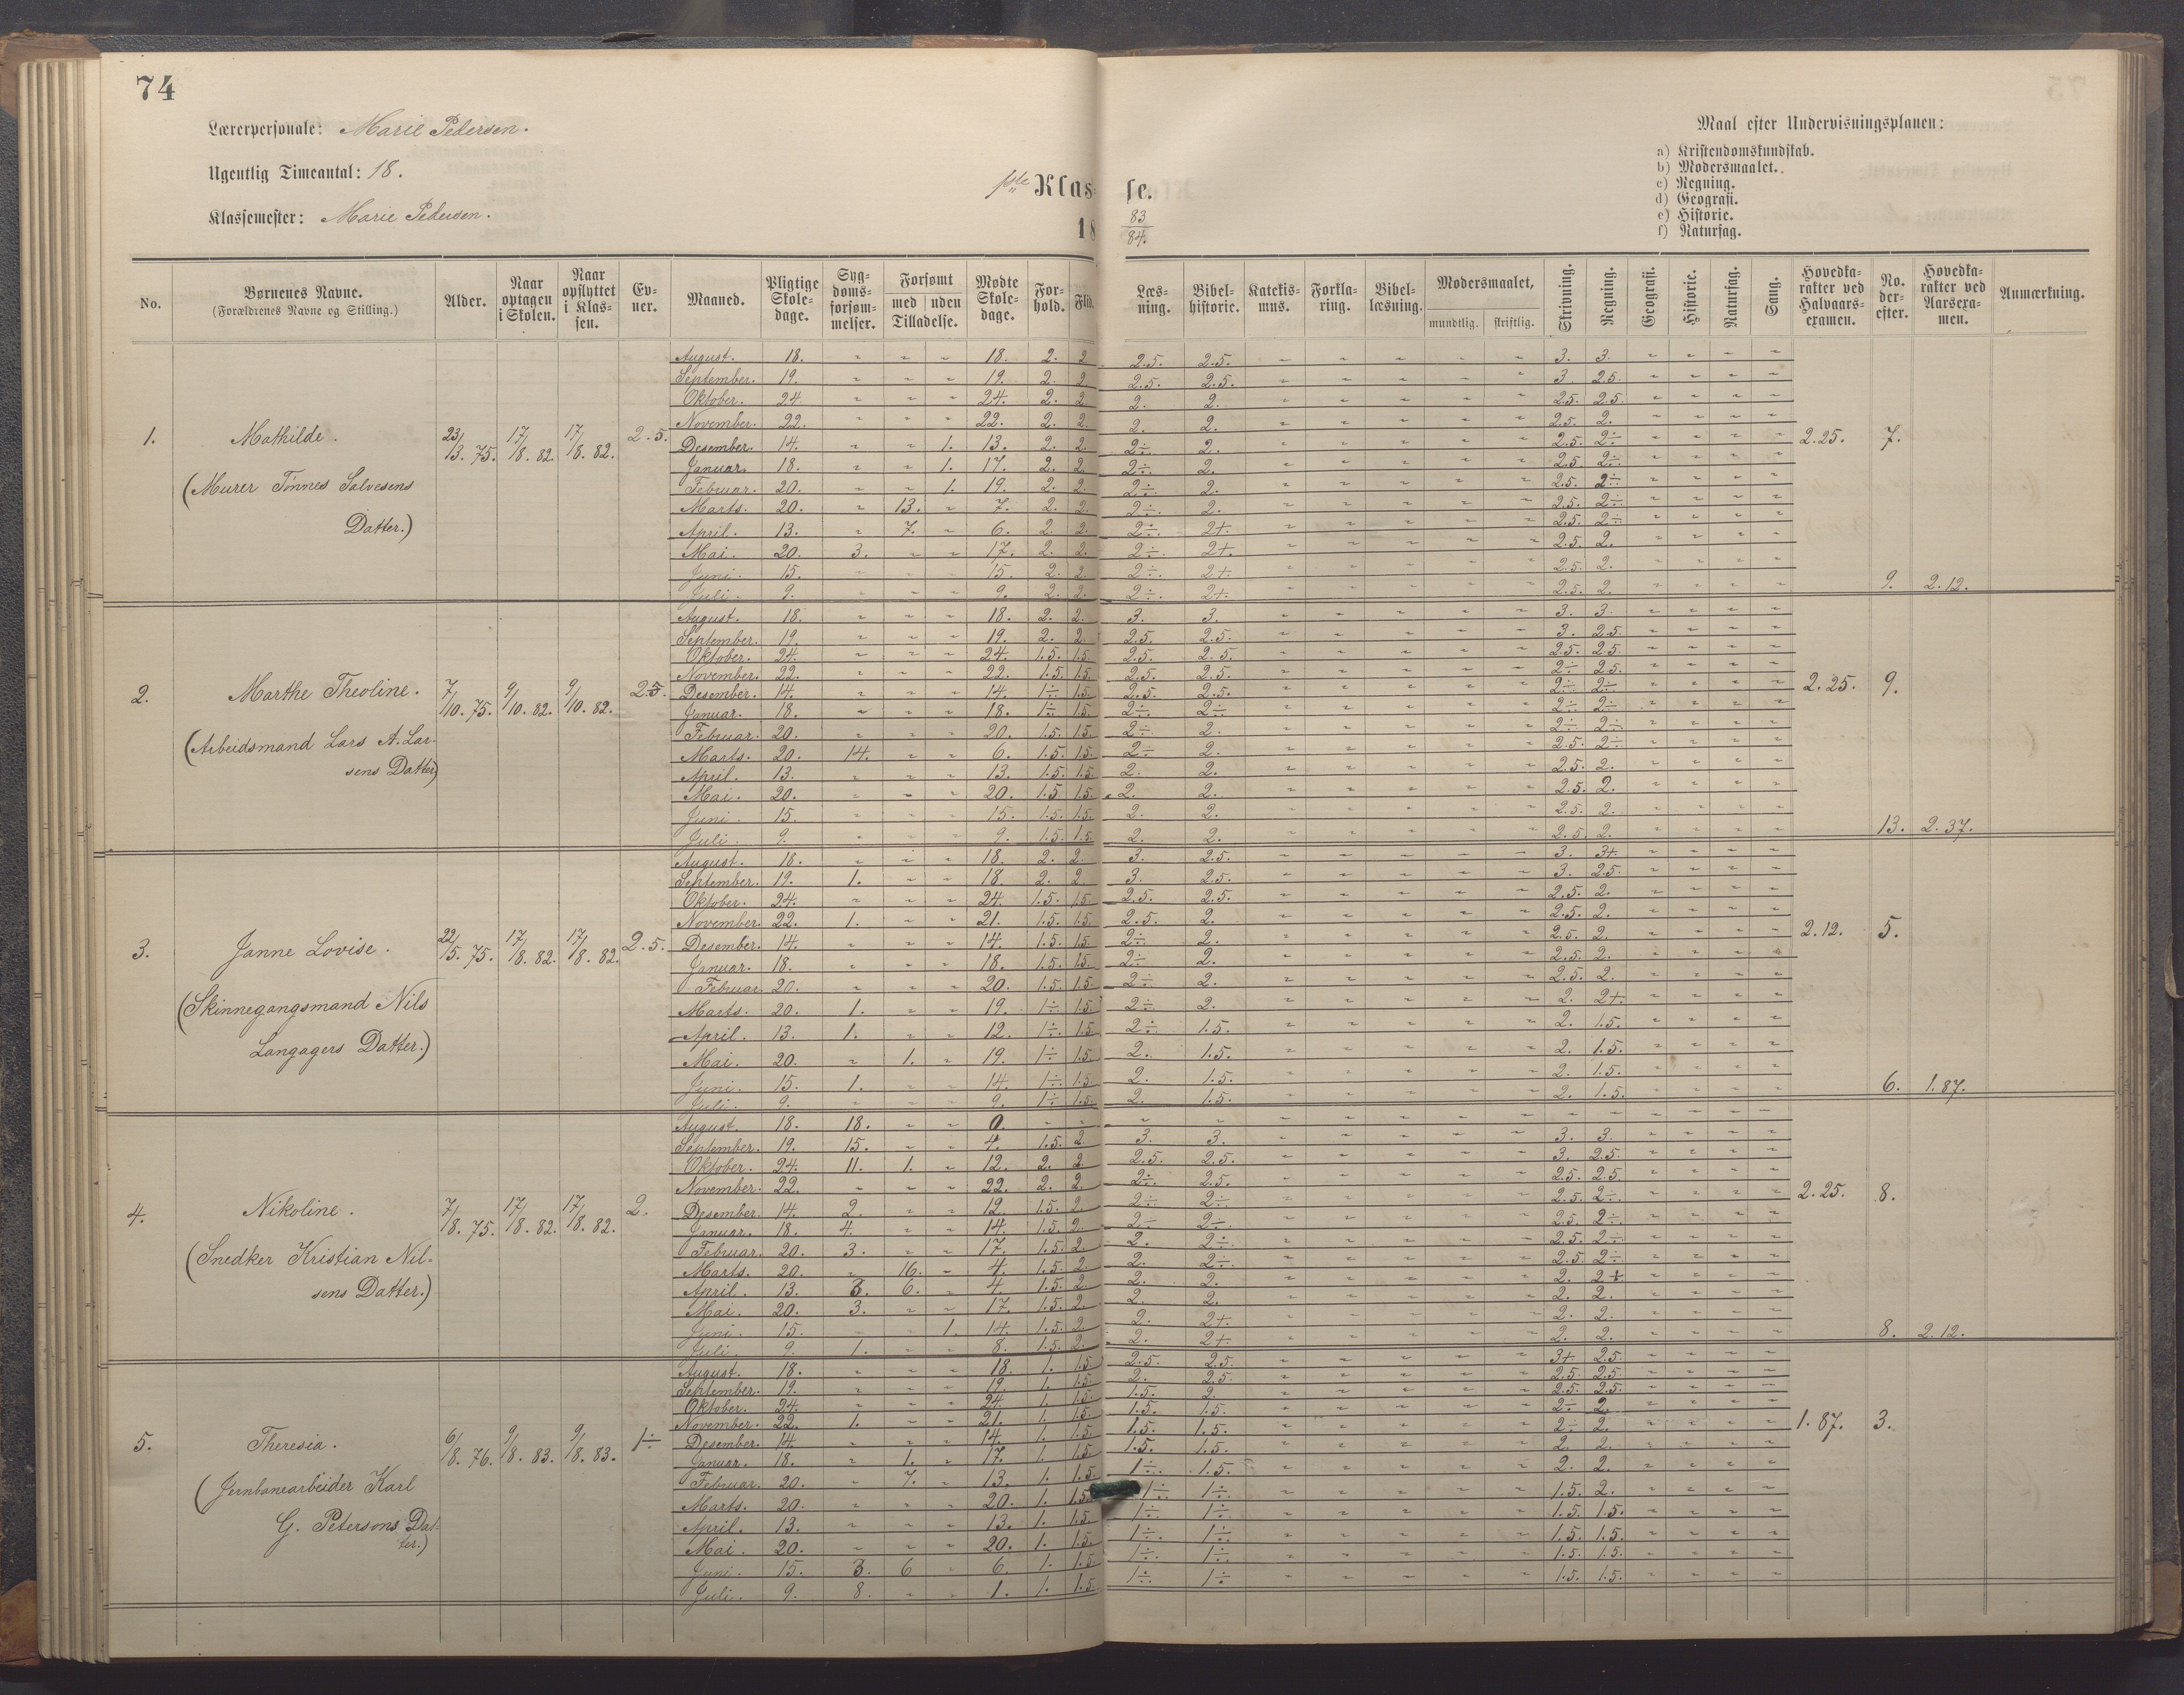 74
Lærerpersonale: Marie Pedersen.
Ugentlig Timeantal: 18.
Klassemester: Marie Pedersen.
1ste Klasse.
18 83/84.
Maal efter Undervisningsplanen:
a) Kristendomskundskab.
b) Modersmaalet.
c) Regning.
d) Geografi.
e) Historie.
f) Naturfag.
No. | Børnenes Navne. (Forældrenes Navne og Stilling.) | Alder. | Naar optagen i Skolen. | Naar opflyttet i Klassen. | Evner. | Maaned. | Pligtige Skoledage. | Sygdomsforsømmelser. | Forsømt med / uden Tilladelse. | Mødte Skoledage. | Forhold. | Flid. | Læsning. | Bibelhistorie. | Katekismus. | Forklaring. | Bibellæsning. | Modersmaalet, mundtlig. / skriftlig. | Skrivning. | Regning. | Geografi. | Historie. | Naturfag. | Sang. | Hovedkarakter ved Halvaarsexamen. | No. derefter. | Hovedkarakter ved Aarsexamen. | Anmærkning.
1. Mathilde. 23/13. 75. 17/8. 82. 17/8. 82. 2.5. 2.25. 7.
(Murer Tønnes Salvesens
Datter.)
August. 18. " " " 18. 2. 2. 2.5. 2.5. 3. 3.
September. 19. " " " 19. 2. 2. 2.5. 2.5. 3. 2.5.
Oktober. 24. " " " 24. 2. 2. 2. 2. 2.5. 2.5.
November. 22. " " " 22. 2. 2. 2. 2. 2.5. 2.
Desember. 14. " " 1. 13. 2. 2. 2÷. 2. 2.5. 2÷.
Januar. 18. " " 1. 17. 2. 2. 2÷. 2. 2.5. 2÷.
Februar. 20. " " 1. 19. 2. 2. 2÷. 2. 2.5. 2÷.
Marts. 20. " 13. " 7. 2. 2. 2÷. 2. 2.5. 2÷.
April. 13. " 7. " 6. 2. 2. 2÷. 2+. 2.5. 2÷.
Mai. 20. 3. " " 17. 2. 2. 2÷. 2+. 2.5. 2.
Juni. 15. " " " 15. 2. 2. 2÷. 2+. 2.5. 2.
Juli. 9. " " " 9. 2. 2. 2÷. 2+. 2.5. 2. 9. 2.12.
2. Marthe Theoline. 7/10. 75. 9/10. 82. 9/10. 82. 2.5. 2.25. 9.
(Arbeidsmand Lars A. Lar-
sens Datter)
August. 18. " " " 18. 2. 2. 3. 3. 3. 3.
September. 19. " " " 19. 2. 2. 2.5. 2.5. 3. 2.5.
Oktober. 24. " " " 24. 1.5. 1.5. 2.5. 2.5. 2.5. 2.5.
November. 22. " " " 22. 1.5. 1.5. 2.5. 2.5. 2÷. 2.5.
Desember. 14. " " " 14. 1÷. 1.5. 2.5. 2.5. 2÷. 2÷.
Januar. 18. " " " 18. 1÷. 1.5. 2÷. 2÷. 2÷. 2÷.
Februar. 20. " " " 20. 1.5. 1.5. 2÷. 2. 2÷. 2÷.
Marts. 20. 14. " " 6. 1.5. 1.5. 2÷. 2. 2.5. 2÷.
April. 13. " " " 13. 1.5. 1.5. 2. 2. 2.5. 2.
Mai. 20. " " " 20. 1.5. 1.5. 2. 2. 2.5. 2.
Juni. 15. " " " 15. 1.5. 1.5. 2. 2. 2.5. 2.
Juli. 9. " " " 9. 1.5. 1.5. 2. 2. 2.5. 2. 13. 2.37.
3. Janne Lovise. 22/5. 75. 17/8. 82. 17/8. 82. 2.5. 2.12. 5.
(Skinnegangsmand Nils
Langagers Datter.)
August. 18. " " " 18. 2. 2. 3. 2.5. 3. 3+.
September. 19. 1. " " 18. 2. 2. 3. 2.5. 3. 2.5.
Oktober. 24. " " " 24. 1.5. 1.5. 2.5. 2.5. 2.5. 2.
November. 22. 1. " " 21. 1.5. 1.5. 2.5. 2. 2.5. 2.
Desember. 14. " " " 14. 1.5. 1.5. 2÷. 2. 2.5. 2.
Januar. 18. " " " 18. 1.5. 1.5. 2÷. 2. 2.5. 2.
Februar. 20. " " " 20. 1.5. 1.5. 2÷. 2. 2.5. 2.
Marts. 20. 1. " " 19. 1÷. 1.5. 2÷. 2. 2. 2+.
April. 13. 1. " " 12. 1÷. 1.5. 2÷. 1.5. 2. 1.5.
Mai. 20. " 1. " 19. 1÷. 1.5. 2. 1.5. 2. 1.5.
Juni. 15. 1. " " 14. 1÷. 1.5. 2. 1.5. 2. 1.5.
Juli. 9. " " " 9. 1÷. 1.5. 2. 1.5. 2. 1.5. 6. 1.87.
4. Nikoline. 7/8. 75. 17/8. 82. 17/8. 82. 2. 2.25. 8.
(Snedker Kristian Nil-
sens Datter.)
August. 18. 18. " " 0. " " " " " "
September. 19. 15. " " 4. 1.5. 2. 3. 3. 3. 3.
Oktober. 24. 11. 1. " 12. 2. 2. 2.5. 2.5. 3. 2.5.
November. 22. " " " 22. 2. 2. 2÷. 2.5. 2.5. 2.5.
Desember. 14. 2. " " 12. 1.5. 2. 2÷. 2÷. 2.5. 2÷.
Januar. 18. 4. " " 14. 1.5. 2. 2÷. 2÷. 2.5. 2÷.
Februar. 20. 3. " " 17. 1.5. 2. 2. 2÷. 2.5. 2÷.
Marts. 20. " 16. " 4. 1.5. 2. 2. 2÷. 2.5. 2÷.
April. 13. 3. 6. " 4. 1.5. 2. 2. 2. 2. 2+.
Mai. 20. 3. " " 17. 1.5. 2. 2. 2. 2. 2.
Juni. 15. " " 1. 14. 1.5. 2. 2. 2+. 2. 2.
Juli. 9. 1. " " 8. 1.5. 2. 2. 2+. 2. 2. 8. 2.12.
5. Theresia. 6/8. 76. 9/8. 83. 9/8. 83. 1÷ 1.87. 3.
(Jernbanearbeider Karl
G. Petersons Dat-
ter.)
August. 18. " " " 18. 1. 1.5. 2.5. 2.5. 3+. 2.5.
September. 19. " " " 19. 1. 1.5. 2. 2.5. 2.5. 2.5.
Oktober. 24. " " " 24. 1. 1.5. 1.5. 2. 2.5. 2.5.
November. 22. 1. " " 21. 1. 1.5. 1.5. 1.5. 2÷. 2.
Desember. 14. " " " 14. 1. 1.5. 1.5. 1.5. 2÷. 2.
Januar. 18. " 1. " 17. 1. 1.5. 1.5. 1.5. 2. 2.
Februar. 20. " 7. " 13. 1. 1.5. 1÷. 1.5. 2. 2.
Marts. 20. " " " 20. 1. 1.5. 1÷. 1÷. 1.5. 2.
April. 13. " " " 13. 1. 1.5. 1÷. 1÷. 1.5. 1.5.
Mai. 20. " " " 20. 1. 1.5. 1÷. 1÷. 1.5. 1.5.
Juni. 15. 3. 6 " 6. 1. 1.5. 1÷. 1÷. 1.5. 1.5.
Juli. 9. 8. " " 1. 1. 1.5. 1÷. 1÷ 1.5. 1.5.